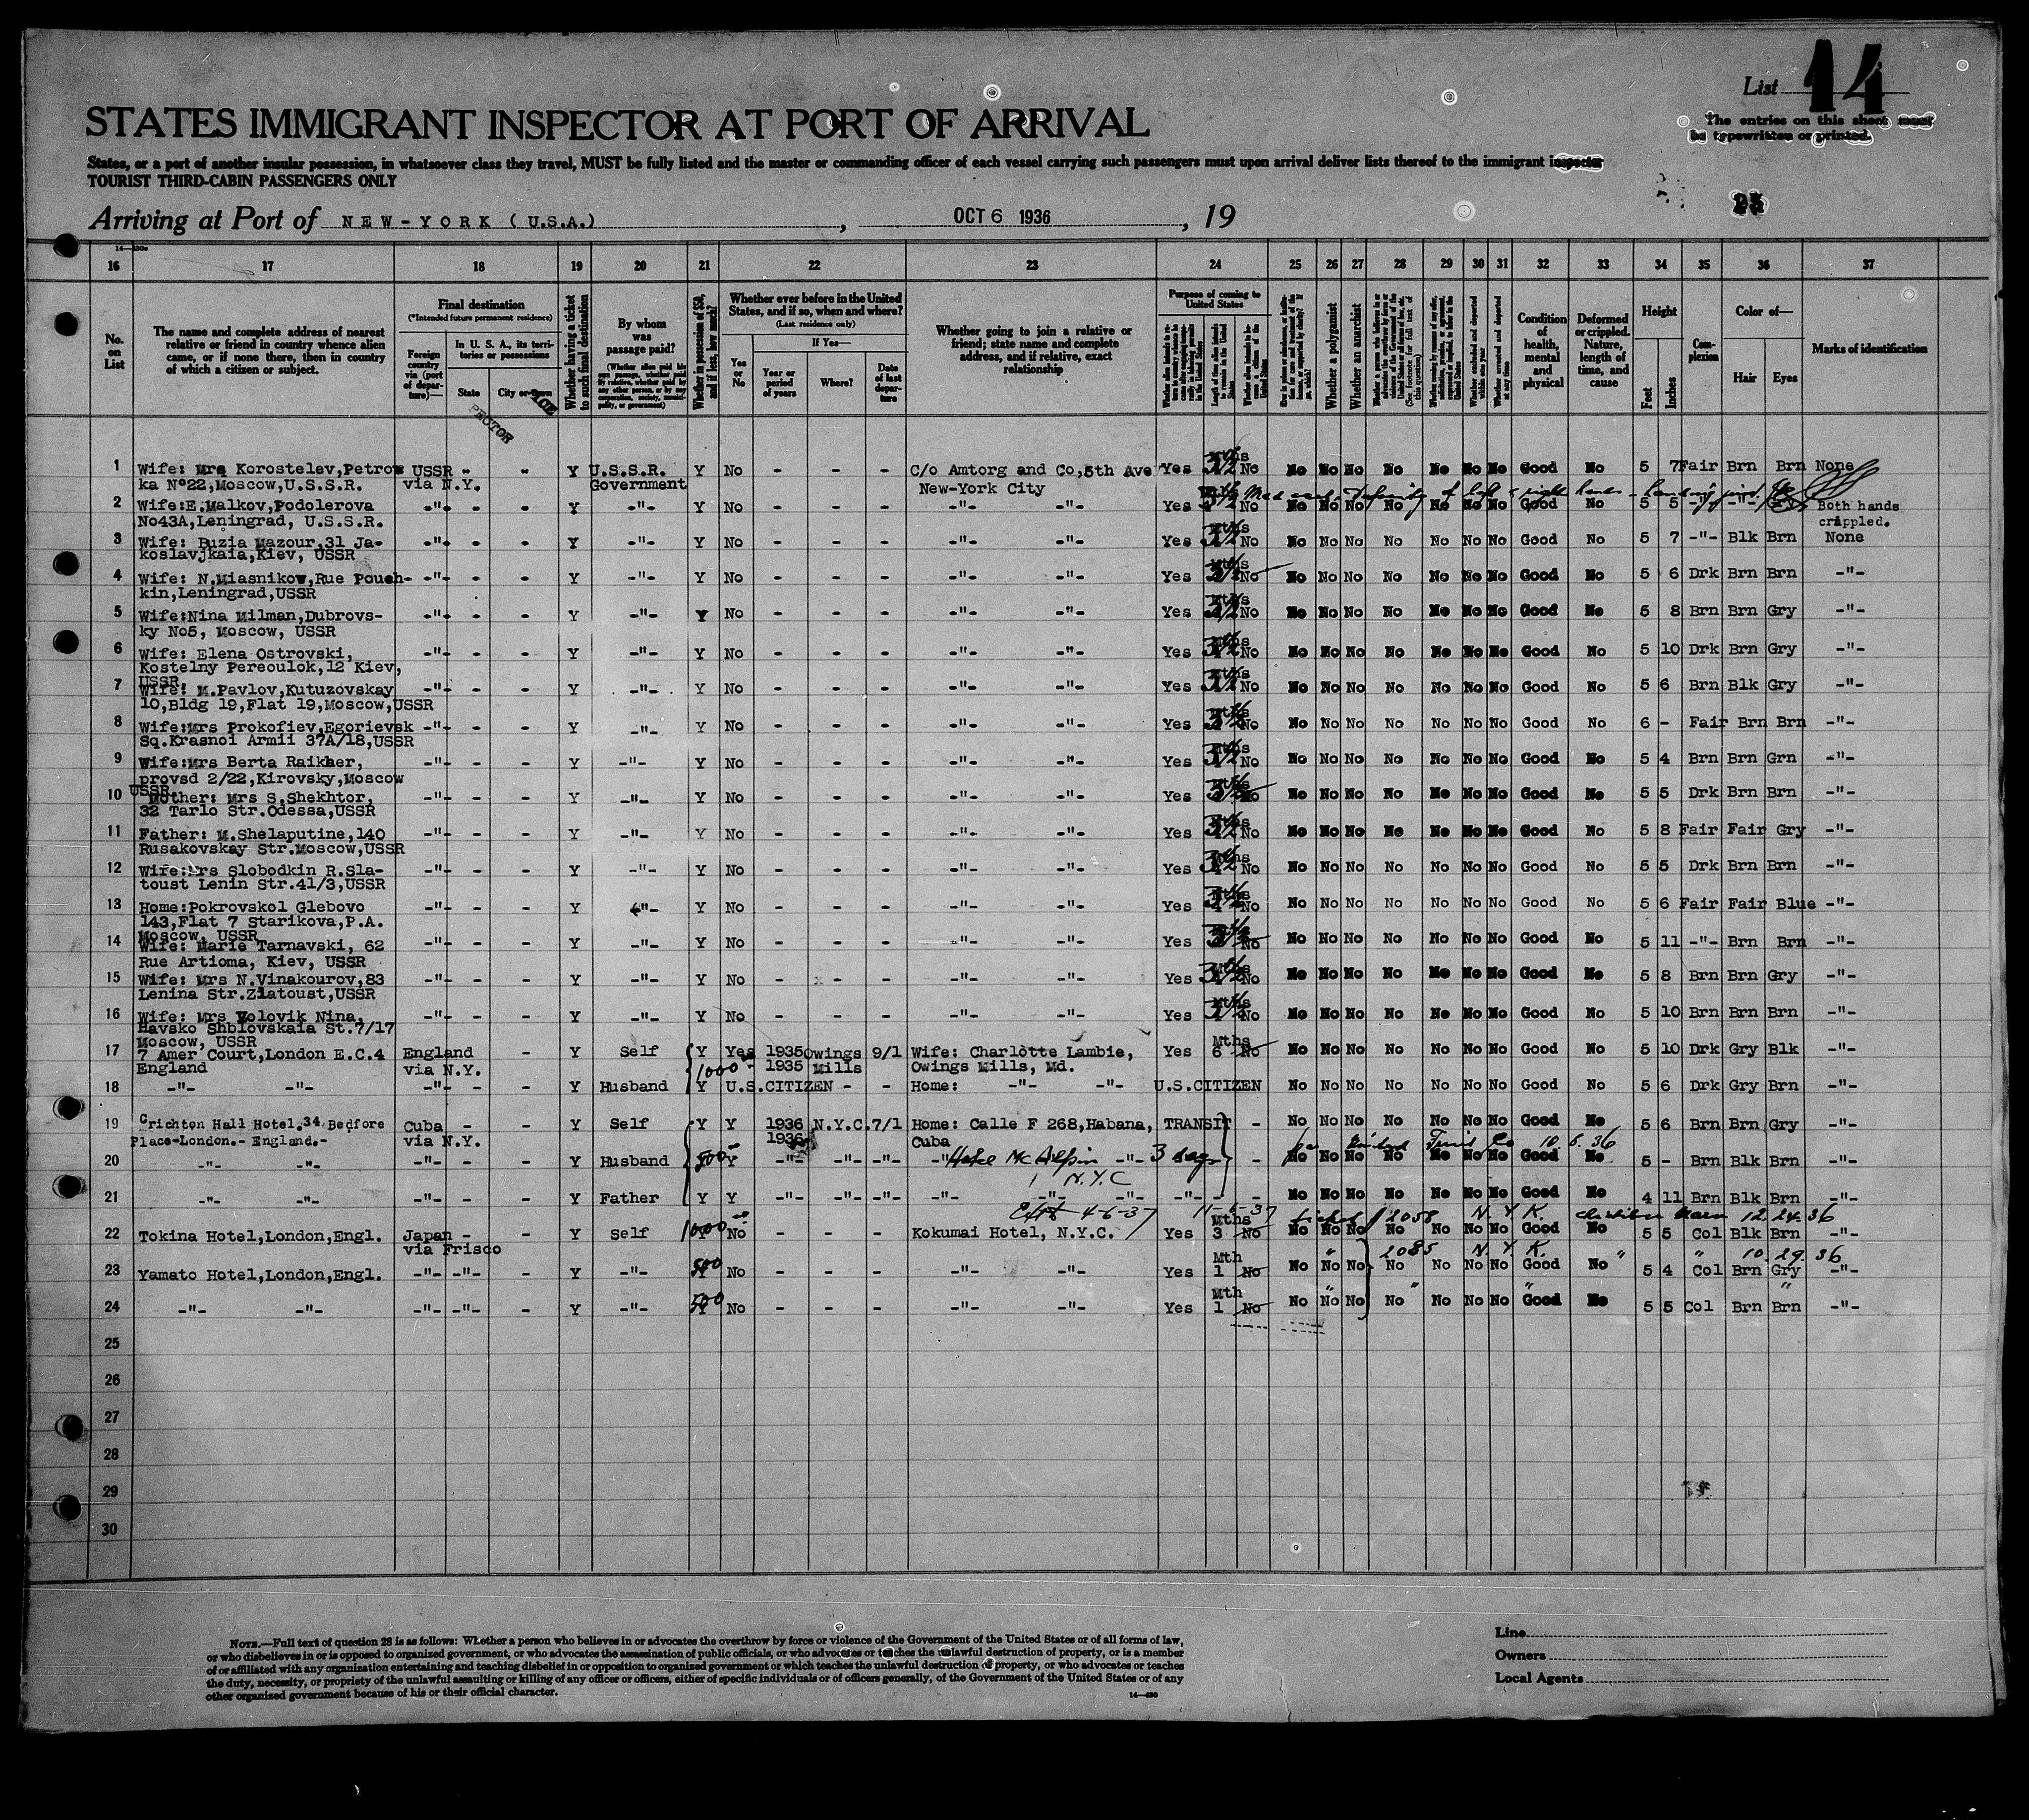 List 14
The entries on this sheet must
be typewritten or printed.
STATES IMMIGRANT INSPECTOR AT PORT OF ARRIVAL
States, or a port of another insular possession, in whatsoever class they travel, MUST be fully listed and the master or commanding officer of each vessel carrying such passengers must upon arrival deliver lists thereof to the immigrant inspector
TOURIST THIRD-CABIN PASSENGERS ONLY
Arriving at Port of NEW-YORK (U.S.A.), OCT 6 1936, 19
16 17 18 19 20 21 22 23 24 25 26 27 28 29 30 31 32 33 34 35 36 37
No. on List
The name and complete address of nearest relative or friend in country whence alien came, or if none there, then in country of which a citizen or subject.
Final destination
(*Intended future permanent residence)
Foreign country via (port of departure)—
In U. S. A., its territories or possessions
State
City or town
Whether having a ticket to such final destination
By whom was passage paid?
Whether in possession of $50, and if less, how much?
Whether ever before in the United States, and if so, when and where?
(Last residence only)
Yes or No
If Yes—
Year or period of years
Where?
Date of last departure
Whether going to join a relative or friend; state name and complete address, and if relative, exact relationship
Purpose of coming to United States
Whether a polygamist
Whether an anarchist
Condition of health, mental and physical
Deformed or crippled. Nature, length of time, and cause
Height
Feet
Inches
Complexion
Color of—
Hair
Eyes
Marks of identification
1 Wife: Mrs Korostelev,Petrow USSR - - Y U.S.S.R. Y No - - - C/o Amtorg and Co,5th Ave Yes 3½ No No No No No No No No Good No 5 7 Fair Brn Brn None
ka N°22,Moscow,U.S.S.R. via N.Y. Government New-York City
2 Wife:E.Malkov,Podolerova -"- - - Y -"- Y No - - - -"- -"- Yes 3½ No No No No No No No No Good No 5 5 Both hands
No43A,Leningrad, U.S.S.R. crippled.
3 Wife: Buzia Mazour,31 Ja- -"- - - Y -"- Y No - - - -"- -"- Yes No No No No No No No No Good No 5 7 -"- Blk Brn None
koslavjkaia,Kiev, USSR
4 Wife: N.Miasnikow,Rue Pouch- -"- - - Y -"- Y No - - - -"- -"- Yes No No No No No No No No Good No 5 6 Drk Brn Brn -"-
kin,Leningrad,USSR
5 Wife:Nina Milman,Dubrovs- -"- - - Y -"- Y No - - - -"- -"- Yes No No No No No No No No Good No 5 8 Brn Brn Gry -"-
ky No5, Moscow, USSR
6 Wife: Elena Ostrovski, -"- - - Y -"- Y No - - - -"- -"- Yes No No No No No No No No Good No 5 10 Drk Brn Gry -"-
Kostelny Pereoulok,12 Kiev,
USSR
7 Wife: M.Pavlov,Kutuzovskay -"- - - Y -"- Y No - - - -"- -"- Yes No No No No No No No No Good No 5 6 Brn Blk Gry -"-
10,Bldg 19,Flat 19,Moscow,USSR
8 Wife:Mrs Prokofiev,Egorievsk -"- - - Y -"- Y No - - - -"- -"- Yes No No No No No No No No Good No 6 - Fair Brn Brn -"-
Sq.Krasnoi Armii 37A/18,USSR
9 Wife:Mrs Berta Raikher, -"- - - Y -"- Y No - - - -"- -"- Yes No No No No No No No No Good No 5 4 Brn Brn Grn -"-
provsd 2/22,Kirovsky,Moscow
USSR
10 Mother: Mrs S.Shekhtor, -"- - - Y -"- Y No - - - -"- -"- Yes No No No No No No No No Good No 5 5 Drk Brn Brn -"-
32 Tarlo Str.Odessa,USSR
11 Father: M.Shelaputine,140 -"- - - Y -"- Y No - - - -"- -"- Yes No No No No No No No No Good No 5 8 Fair Fair Gry -"-
Rusakovskay Str.Moscow,USSR
12 Wife:Mrs Slobodkin R.Sla- -"- - - Y -"- Y No - - - -"- -"- Yes No No No No No No No No Good No 5 5 Drk Brn Brn -"-
toust Lenin Str.41/3,USSR
13 Home:Pokrovskol Glebovo -"- - - Y -"- Y No - - - -"- -"- Yes No No No No No No No No Good No 5 6 Fair Fair Blue -"-
143,Flat 7 Starikova,P.A.
Moscow, USSR
14 Wife: Marie Tarnavski, 62 -"- - - Y -"- Y No - - - -"- -"- Yes No No No No No No No No Good No 5 11 -"- Brn Brn -"-
Rue Artioma, Kiev, USSR
15 Wife: Mrs N.Vinakourov,83 -"- - - Y -"- Y No - - - -"- -"- Yes No No No No No No No No Good No 5 8 Brn Brn Gry -"-
Lenina Str.Zlatoust,USSR
16 Wife: Mrs Volovik Nina, -"- - - Y -"- Y No - - - -"- -"- Yes No No No No No No No Good No 5 10 Brn Brn Brn -"-
Havsko Shblovskaia St.7/17
Moscow, USSR
17 7 Amer Court,London E.C.4 England - Y Self Y Yes 1935 Owings 9/1 Wife: Charlotte Lambie, Yes 6 Mths No No No No No No No No Good No 5 10 Drk Gry Blk -"-
England via N.Y. 1000 1935 Mills Owings Mills, Md.
18 -"- -"- -"- - - Y Husband Y U.S.CITIZEN - - Home: -"- -"- U.S.CITIZEN No No No No No No No Good No 5 6 Drk Gry Brn -"-
19 Crichton Hall Hotel.34 Bedfore Cuba - Y Self Y Y 1936 N.Y.C. 7/1 Home: Calle F 268,Habana, TRANSIT - No No No No No No No Good No 5 6 Brn Brn Gry -"-
Place-London.- England.- via N.Y. 1936 Cuba per United Fruit Co 10.6.36
20 -"- -"- -"- - - Y Husband 500 Y -"- -"- -"- Hotel McAlpin -"- 3 days - No No No No No No No Good No 5 - Brn Blk Brn -"-
N.Y.C
21 -"- -"- -"- - - Y Father Y Y -"- -"- -"- -"- -"- -"- -"- - - No No No No No No No Good No 4 11 Brn Blk Brn -"-
4-6-37 ticket 2058 N.Y.K. 12.24.36
22 Tokina Hotel,London,Engl. Japan - - Y Self 1000 No - - - Kokumai Hotel, N.Y.C. Yes 3 Mths No No No No No No No No Good No 5 5 Col Blk Brn -"-
via Frisco 2085 N.Y.K. " 10.29.36
23 Yamato Hotel,London,Engl. -"- -"- - Y -"- 500 No - - - -"- -"- Yes 1 Mth No No No No No No No No Good No 5 4 Col Brn Gry -"-
24 -"- -"- -"- -"- - Y -"- 500 No - - - -"- -"- Yes 1 Mth No No No No No No No No Good No 5 5 Col Brn Brn -"-
25
26
27
28
29
30
NOTE.—Full text of question 28 is as follows: Whether a person who believes in or advocates the overthrow by force or violence of the Government of the United States or of all forms of law,
or who disbelieves in or is opposed to organized government, or who advocates the assassination of public officials, or who advocates or teaches the unlawful destruction of property, or is a member
of or affiliated with any organization entertaining and teaching disbelief in or opposition to organized government or which teaches the unlawful destruction of property, or who advocates or teaches
the duty, necessity, or propriety of the unlawful assaulting or killing of any officer or officers, either of specific individuals or of officers generally, of the Government of the United States or of any
other organized government because of his or their official character.
14—430
Line
Owners
Local Agents